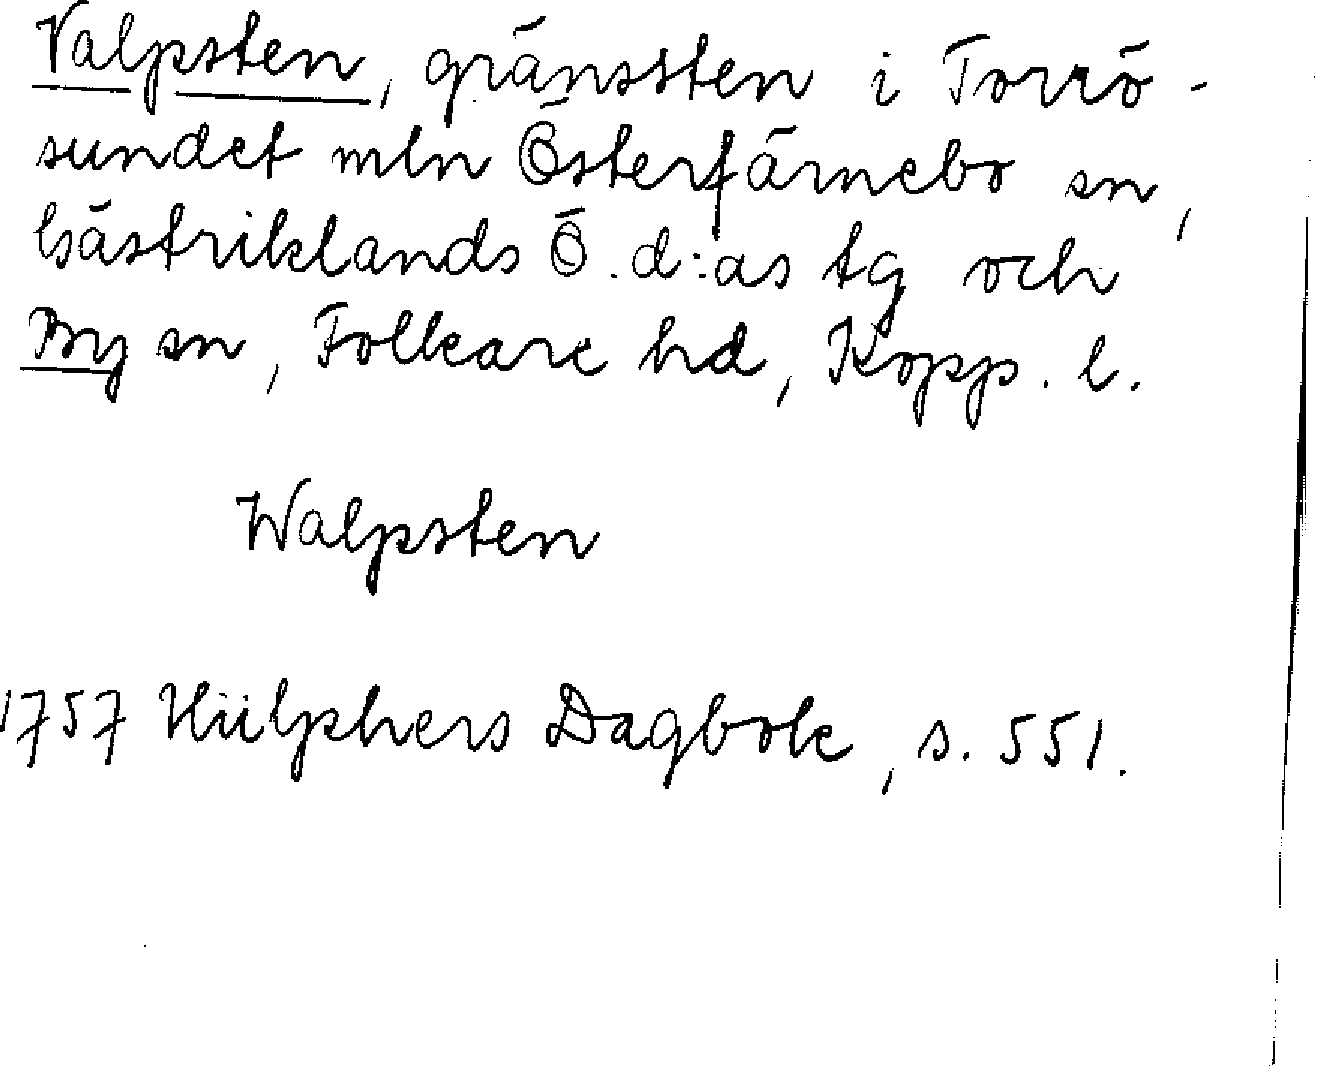 Valpsten, gränssten i Torrö-
sundet mln Österfärnebo sn,
Gästriklands Ö. d:as tg och
By sn, Folkare hd, Kopp. l.
Walpsten
1757 Hülphers Dagbok, s. 551.